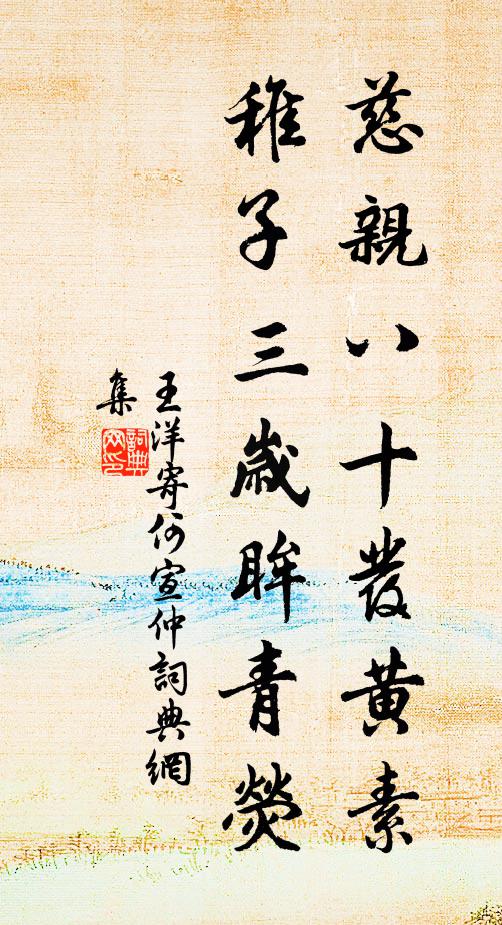 慈親八十發黃素
稚子三歲眸青熒
王洋寄何宣仲詞典網
集
詞典网印